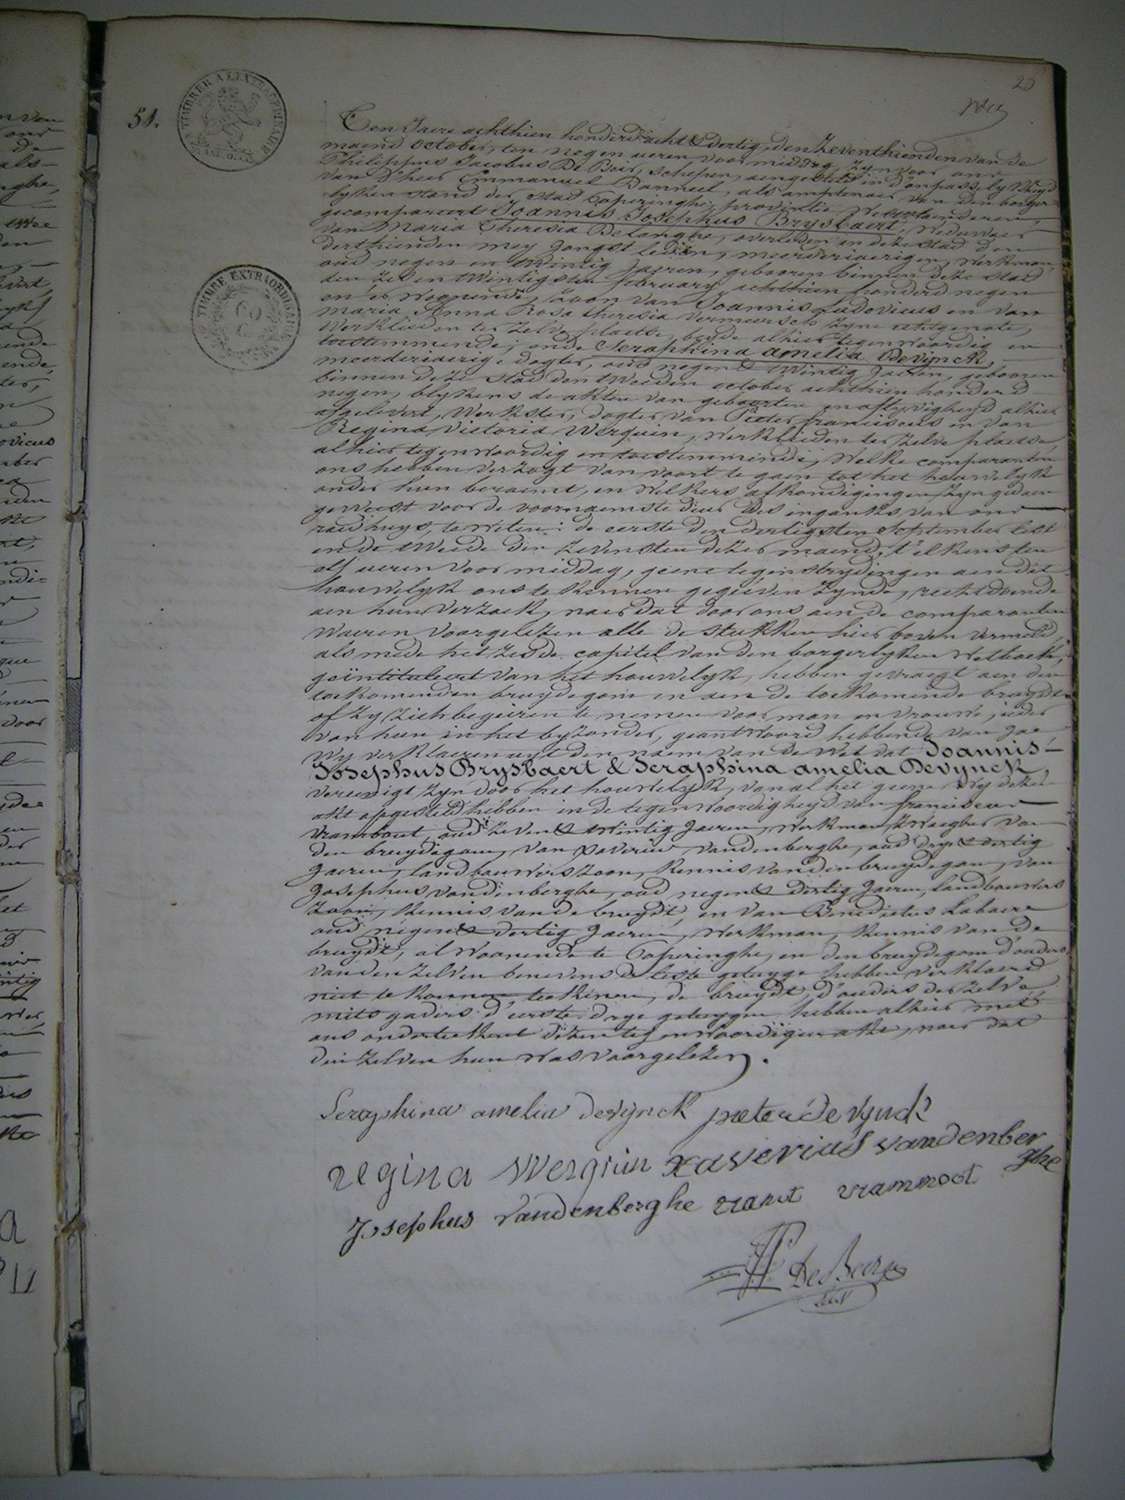 23
51.
Ten Jaere achthien honderd acht & dertig, den Zeventhienden van de
maend october, ten negen uren voor middag, Zyn voor ons
Philippus Jacobus De Boir, schepen, aengesteld in d'onpasselykheyd
van D'heer Emmanuel Vanneel, als amptenaer van den borger-
lyken stand der stad Poperinghe, provintie Westvlaenderen,
gecompareert Joannis Josephus Brysbaert, Weduwaer
van Maria Theresia Delanghe, overleden in deze stad den
derthienden mey Jongst leden, meerderjaerigen, Werkman,
oud negen en twintig Jaeren, geboren binnen deze stad
den Zes en twintigsten february achthien honderd negen
en er Woonende, Zoon van Joannis Ludovicus en van
Maria Anna Rosa theresia Vermeersch Zyne echtgenote,
Werklieden ter Zelve plaetse, beede alhier tegenwoordig en
toestemmende; ende Seraphina amelia Devynck,
meerderjaerige dogter, oud negen & twintig Jaeren, geboren
binnen deze stad den tweeden october achthien honderd
negen, blykens de akten van geboorten en aflyvigheyd alhier
afgelevert, Werkster, dogter van Pieter franciscus en van
Regina Victoria Werquin, Werklieden ter Zelve plaetse
alhier tegenwoordig en toestemmende; Welke comparanten
ons hebben verzogt van voort te gaen tot het houwelyk
onder hun beraemt, en Welkers afkondigingen Zyn gedaen
geweest voor de voornaemste deur des ingancks van ons
raedhuys, te weten: de eerste den dertigsten september lest
en de tweede den Zevensten dezer maend, t'elkens ten
elf uren voor middag, geene tegenstrydingen aen dit
houwelyk ons te kennen gegeven Zynde, rechtdoende
aen hun verzoek, naer dat door ons aen de comparanten
Waeren voorgelezen alle de stukken hier boven vermeld,
als mede het Zesde capitel van den borgerlyken Wetboek,
geïntituleert van het houwelyk, hebben gevraegt aen den
toekomenden bruydegom en aen de toekomende bruydt
of Zy Zich begeiren te nemen voor man en vrouwe; ieder
van hun in het byzonder, geantwoord hebbende van Jae
Wy verklaeren uyt den naem van de Wet dat Joannis-
Josephus Brysbaert & Seraphina amelia Devynck,
vereenigt Zyn door het houwelyk, van al het geene Wy deze
akt opgesteld hebben in de tegenwoordigheyd van franciscus
Vrambout, oud Zeven & twintig Jaeren, Werkman, Zwaeger van
den bruydegom, van Xaverius Vandenberghe, oud dry & dertig
Jaeren, landbouwers Zoon, kennis van den bruydegom, van
Josephus Vandenberghe, oud negen & dertig Jaeren, landbouwers
Zoon, kennis van de bruydt, en van Benedictus Labaere
oud negen & dertig Jaeren, Werkman, kennis van de
bruydt, al Woonende te Poperinghe, en den bruydegom d'ouders
van den Zelven benevens de leste getuyge hebben verklaerd
niet te konnen teekenen, de bruydt, d'ouders der Zelve,
mitsgaders d'eerste drye getuygen hebben alhier met
ons onderteekent dezen tegenwoordigen akt, naer dat
den Zelven hun Was voorgelezen.
Seraphina amelia devynck pieter devynck
regina Werquin xaverius vandenber
ghe
Josephus vandenberghe